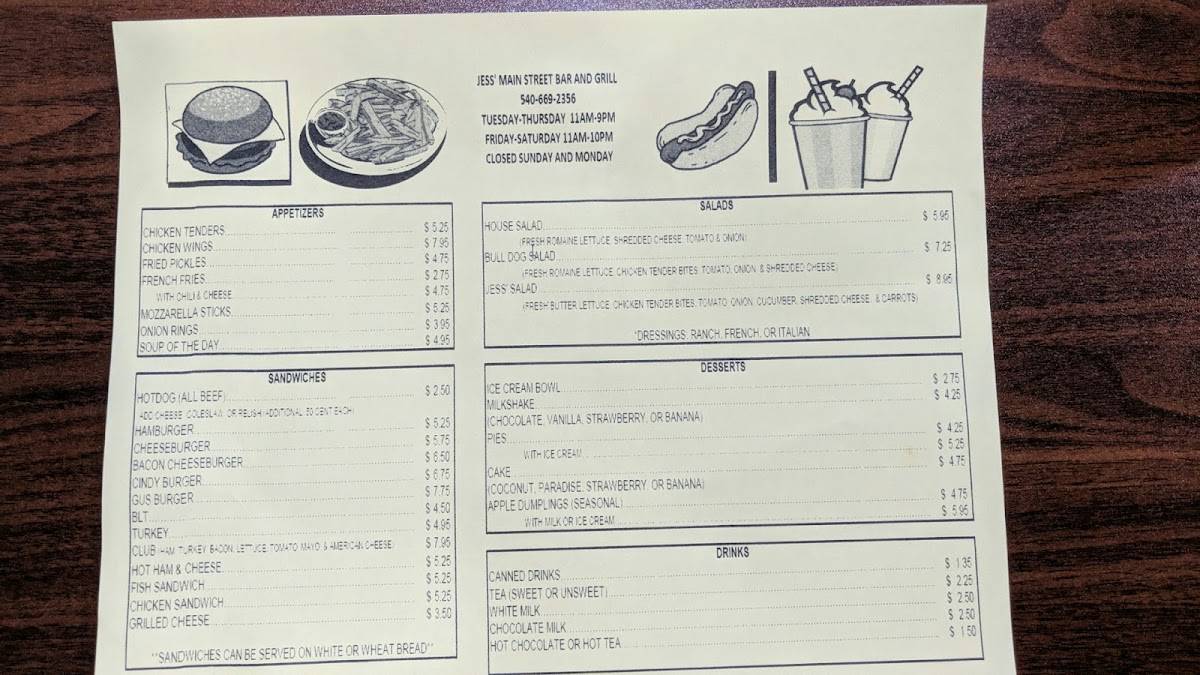 JESS' MAIN STREET BAR AND GRILL
540-669-2356
TUESDAY-THURSDAY 11AM-9PM
FRIDAY-SATURDAY 11AM-10PM
CLOSED SUNDAY AND MONDAY
APPETIZERS
CHICKEN TENDERS $ 5.25
CHICKEN WINGS $ 7.95
FRIED PICKLES $ 4.75
FRENCH FRIES $ 2.75
WITH CHILI & CHEESE $ 4.75
MOZZARELLA STICKS $ 5.25
ONION RINGS $ 3.95
SOUP OF THE DAY $ 4.95
SANDWICHES
HOTDOG (ALL BEEF) $ 2.50
ADD CHEESE, COLESLAW, OR RELISH (ADDITIONAL 50 CENT EACH)
HAMBURGER $ 5.25
CHEESEBURGER $ 5.75
BACON CHEESEBURGER $ 6.50
CINDY BURGER $ 6.75
GUS BURGER $ 7.75
BLT $ 4.50
TURKEY $ 4.95
CLUB (HAM, TURKEY, BACON, LETTUCE, TOMATO, MAYO, & AMERICAN CHEESE) $ 7.95
HOT HAM & CHEESE $ 5.25
FISH SANDWICH $ 5.25
CHICKEN SANDWICH $ 5.25
GRILLED CHEESE $ 3.50
**SANDWICHES CAN BE SERVED ON WHITE OR WHEAT BREAD**
SALADS
HOUSE SALAD $ 5.95
(FRESH ROMAINE LETTUCE, SHREDDED CHEESE, TOMATO & ONION)
BULL DOG SALAD $ 7.25
(FRESH ROMAINE LETTUCE, CHICKEN TENDER BITES, TOMATO, ONION, & SHREDDED CHEESE)
JESS' SALAD $ 8.95
(FRESH BUTTER LETTUCE, CHICKEN TENDER BITES, TOMATO, ONION, CUCUMBER, SHREDDED CHEESE, & CARROTS)
*DRESSINGS: RANCH, FRENCH, OR ITALIAN
DESSERTS
ICE CREAM BOWL $ 2.75
MILKSHAKE $ 4.25
(CHOCOLATE, VANILLA, STRAWBERRY, OR BANANA)
PIES $ 4.25
WITH ICE CREAM $ 5.25
CAKE $ 4.75
(COCONUT, PARADISE, STRAWBERRY, OR BANANA)
APPLE DUMPLINGS (SEASONAL) $ 4.75
WITH MILK OR ICE CREAM $ 5.95
DRINKS
CANNED DRINKS $ 1.35
TEA (SWEET OR UNSWEET) $ 2.25
WHITE MILK $ 2.50
CHOCOLATE MILK $ 2.50
HOT CHOCOLATE OR HOT TEA $ 1.50